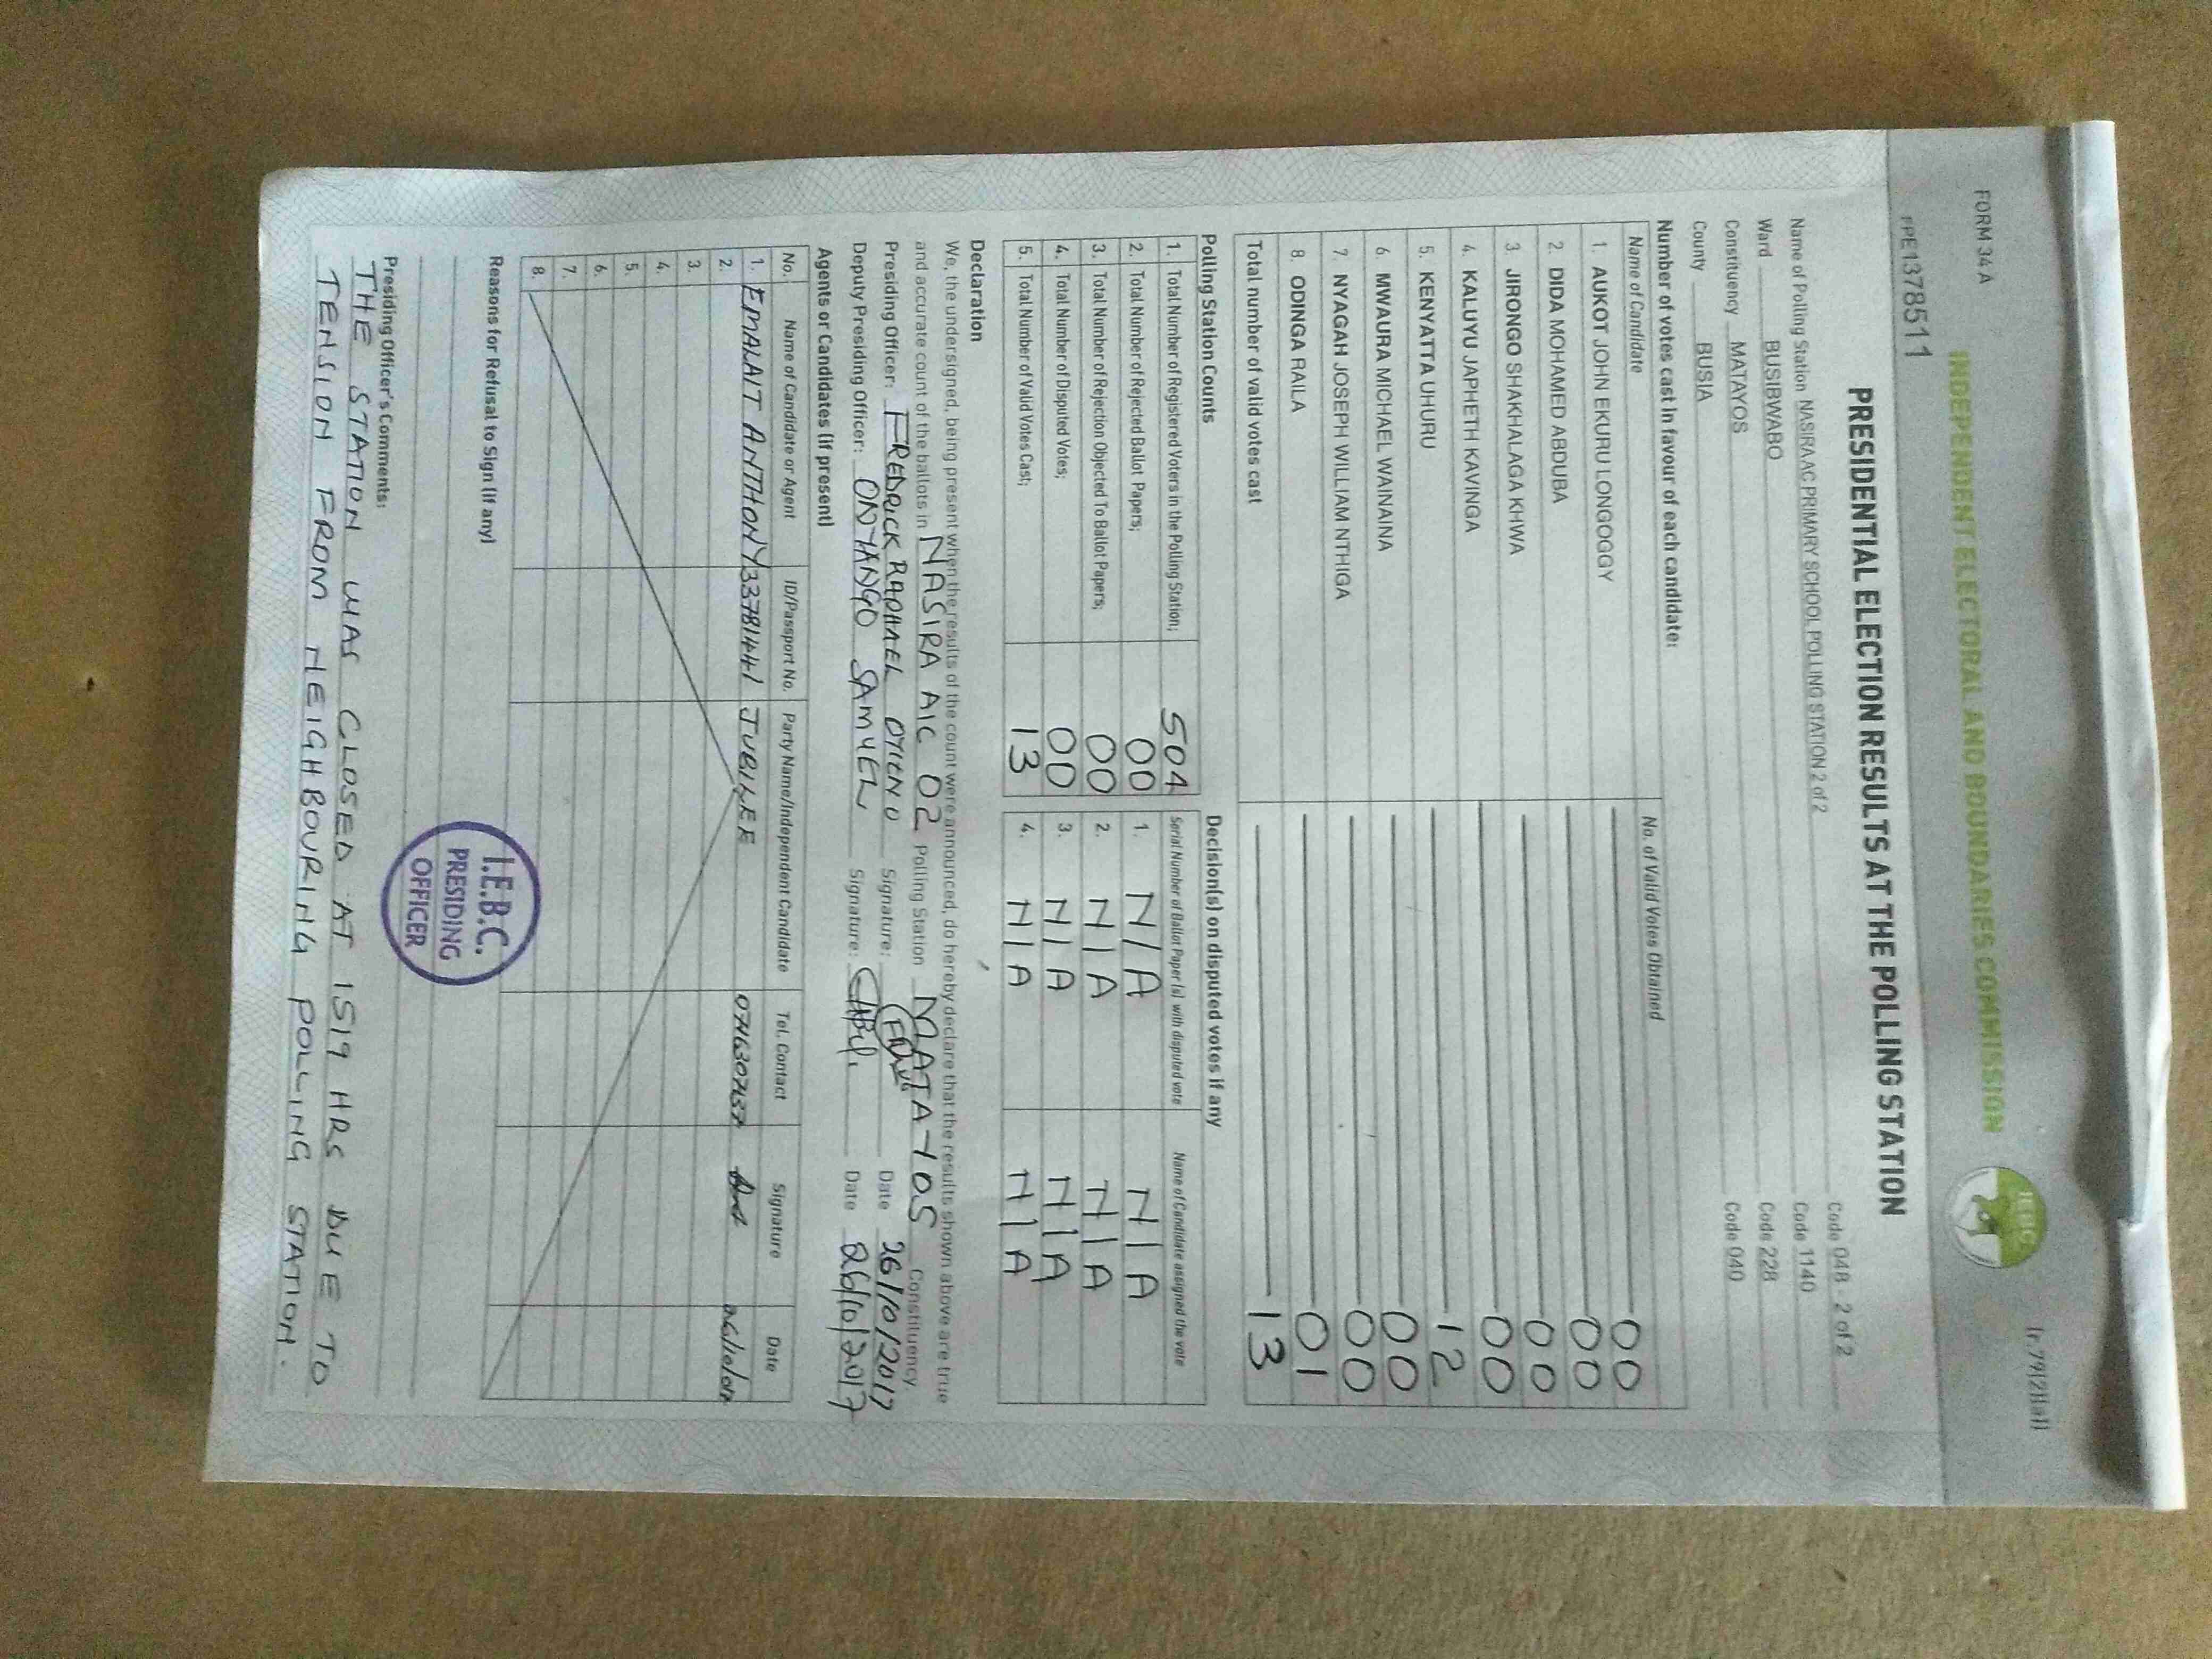 FORM 34 A
(r.79(2)(a))
INDEPENDENT ELECTORAL AND BOUNDARIES COMMISSION
IEBC
PRE1378511
PRESIDENTIAL ELECTION RESULTS AT THE POLLING STATION
Name of Polling Station NASIRA AC PRIMARY SCHOOL POLLING STATION 2 of 2 Code 048 - 2 of 2
Ward BUSIBWABO Code 1140
Constituency MATAYOS Code 228
County BUSIA Code 040
Number of votes cast in favour of each candidate:
Name of Candidate No. of Valid Votes Obtained
1. AUKOT JOHN EKURU LONGOGGY 00
2. DIDA MOHAMED ABDUBA 00
3. JIRONGO SHAKHALAGA KHWA 00
4. KALUYU JAPHETH KAVINGA 00
5. KENYATTA UHURU 12
6. MWAURA MICHAEL WAINAINA 00
7. NYAGAH JOSEPH WILLIAM NTHIGA 00
8. ODINGA RAILA 01
Total number of valid votes cast 13
Polling Station Counts
1. Total Number of Registered Voters in the Polling Station; 504
2. Total Number of Rejected Ballot Papers; 00
3. Total Number of Rejection Objected To Ballot Papers; 00
4. Total Number of Disputed Votes; 00
5. Total Number of Valid Votes Cast; 13
Decision(s) on disputed votes if any
Serial Number of Ballot Paper(s) with disputed vote Name of Candidate assigned the vote
1. N/A N/A
2. N/A N/A
3. N/A N/A
4. N/A N/A
Declaration
We, the undersigned, being present when the results of the count were announced, do hereby declare that the results shown above are true
and accurate count of the ballots in NASIRA AIC 02 Polling Station MATAYOS Constituency.
Presiding Officer: FREDRICK RAPHAEL OTIENO Signature: Date 26/10/2017
Deputy Presiding Officer: ONYANGO SAMUEL Signature: Date 26/10/2017
Agents or Candidates (if present)
No. Name of Candidate or Agent ID/Passport No. Party Name/Independent Candidate Tel. Contact Signature Date
1. EMALAIT ANTHONY 33781441 JUBILEE
2.
3.
4.
5.
6.
7.
8.
Reasons for Refusal to Sign (if any)
I.E.B.C.
PRESIDING
OFFICER
Presiding Officer's Comments:
THE STATION WAS CLOSED AT 1519 HRS DUE TO
TENSION FROM NEIGHBOURING POLLING STATION.